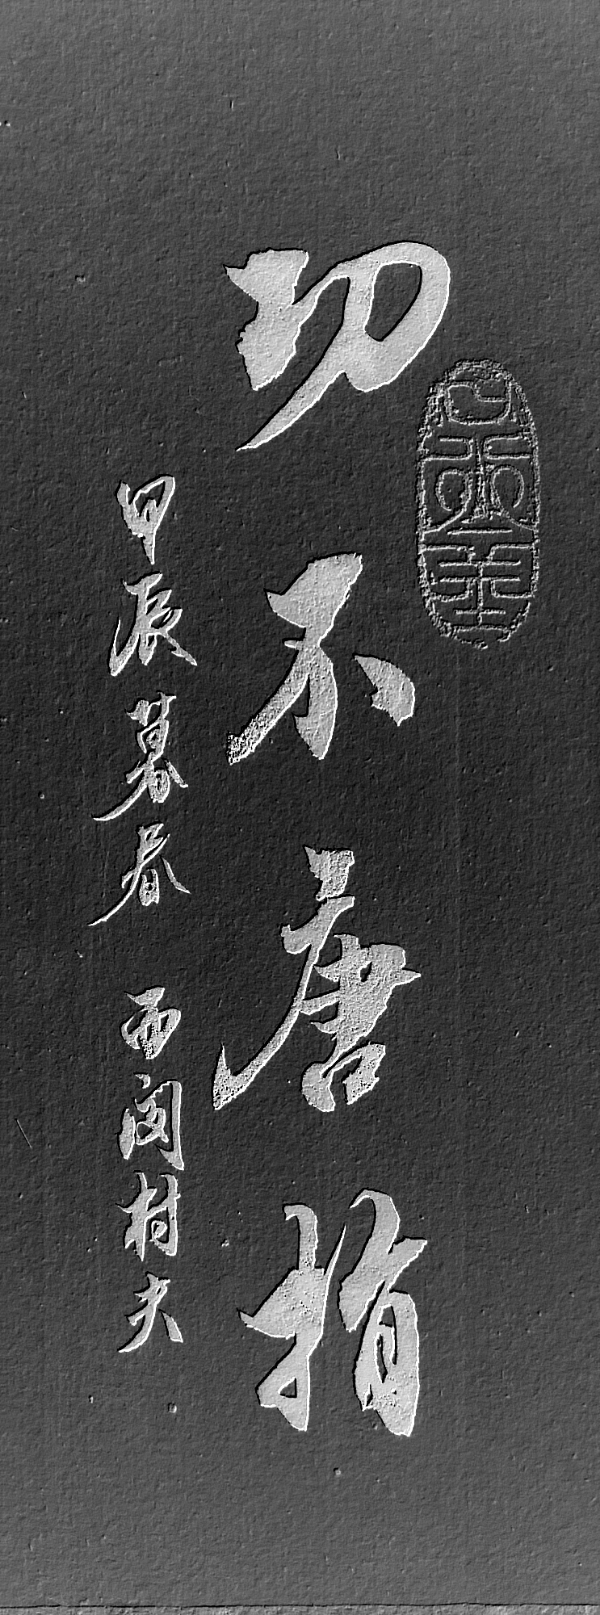 功不唐捐
甲辰暮春 西闵村夫